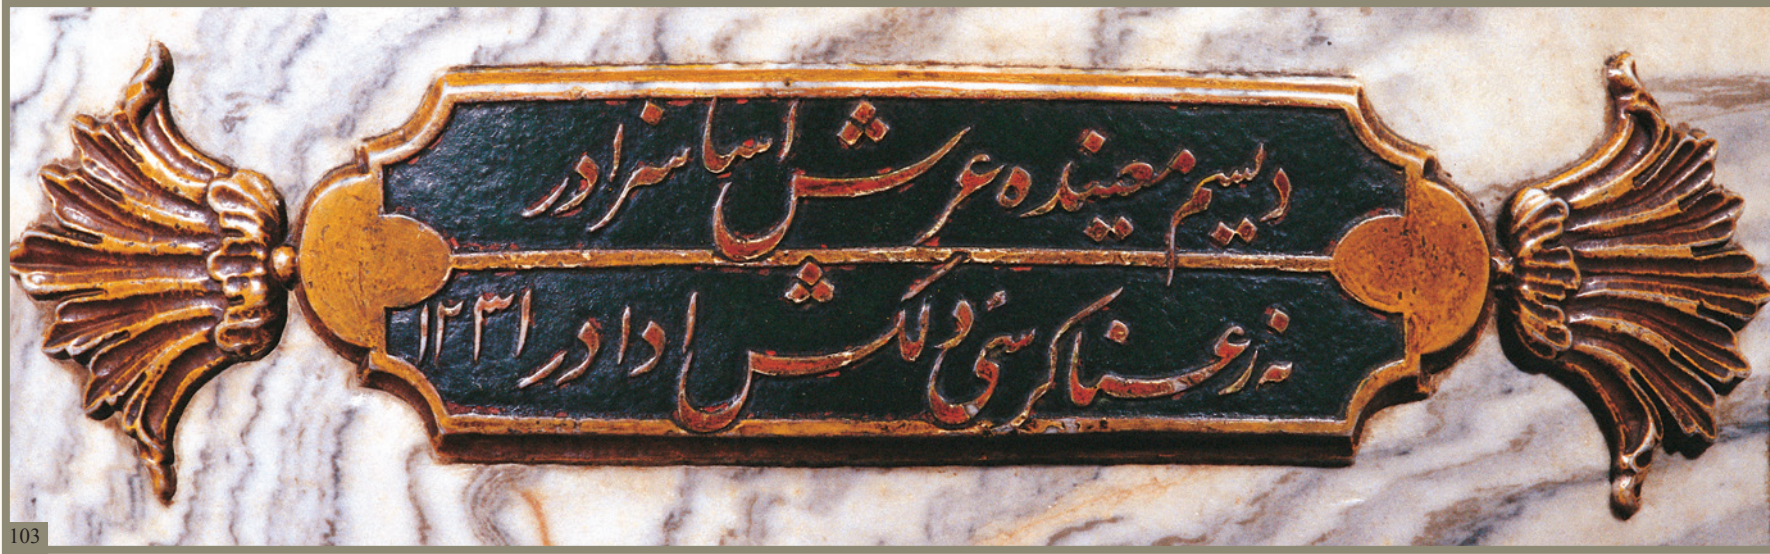 دیسم معینده عرش اسا سزادر
نه رعنا کرسی دلکش ادادر ۱۲۳۱
103